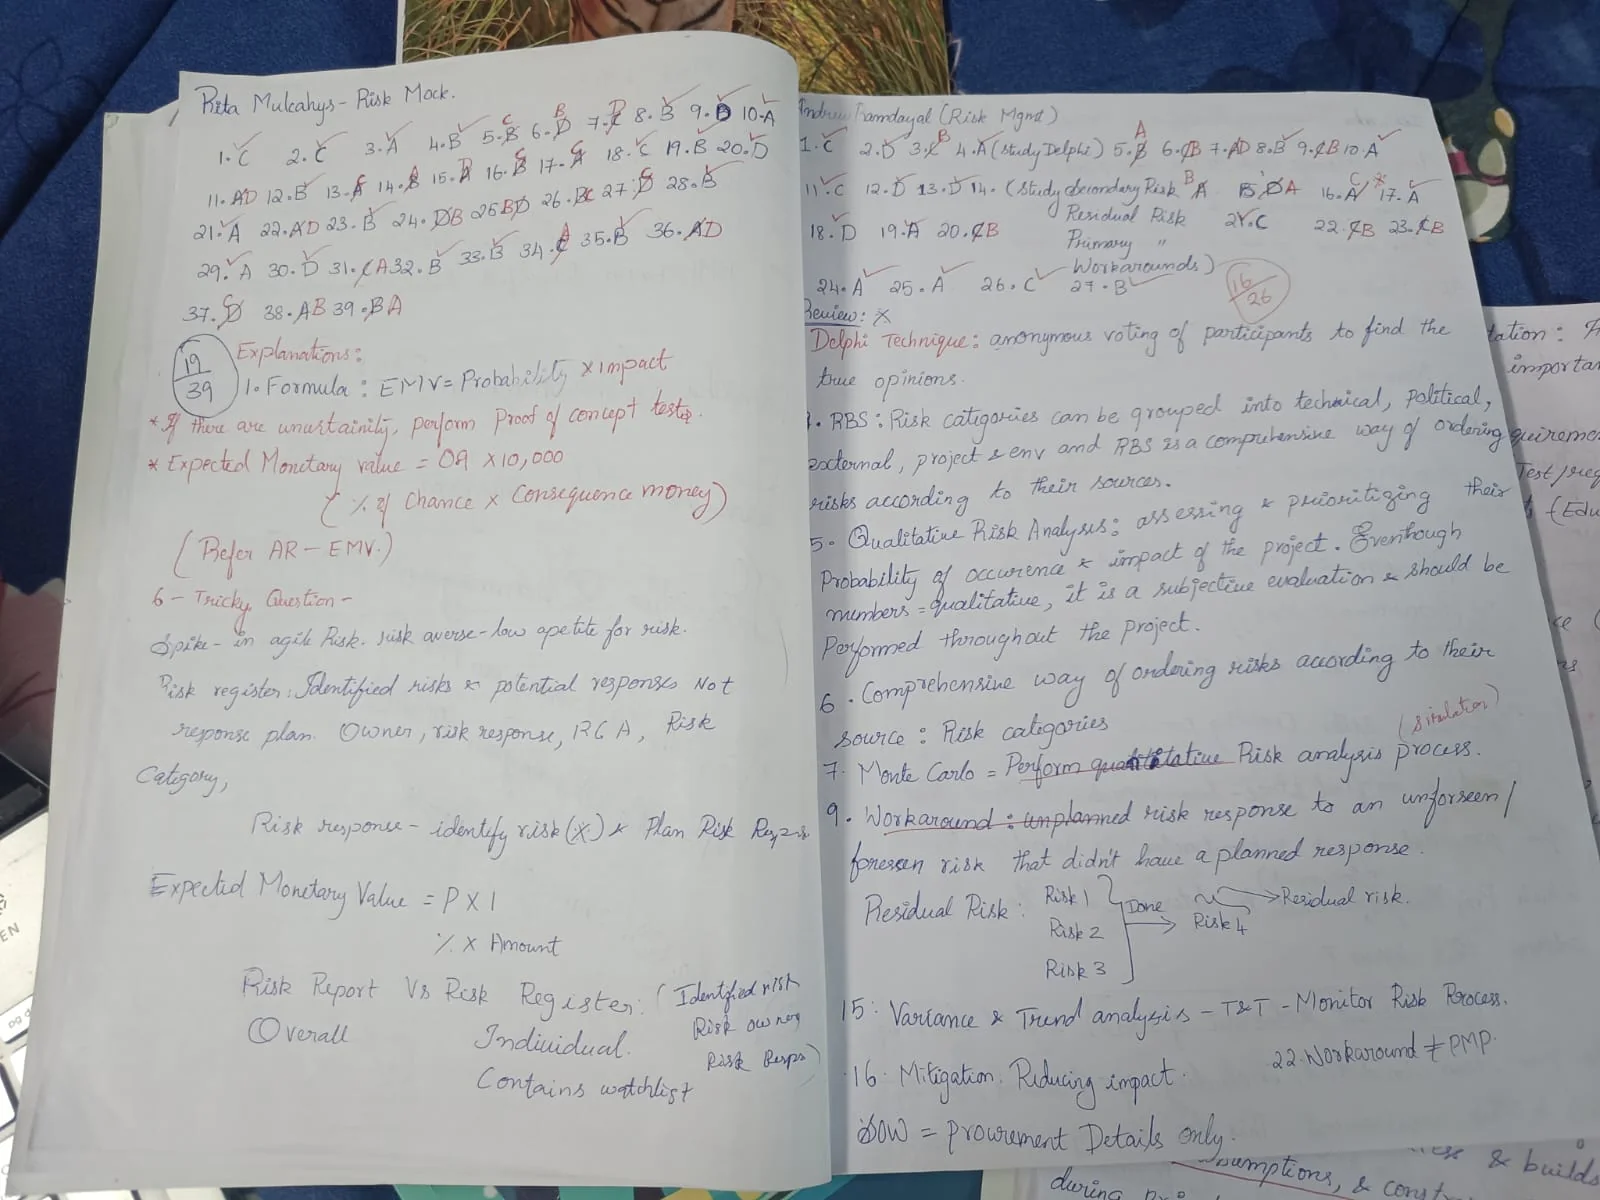 Rita Mulcahys - Risk Mock.
1. C 2. C 3. A 4. B 5. B C 6. D B 7. C D 8. B 9. D 10. A
11. A D 12. B 13. A C 14. B A 15. A D 16. B C 17. A C 18. C 19. B 20. D
21. A 22. A D 23. B 24. D B 25 B D 26. B C 27. D C 28. B
29. A 30. D 31. C A 32. B 33. B 34. C A 35. B 36. A D
37. D C 38. A B 39. B A
19/39
Explanations:
1. Formula : EMV = Probability X impact
* If there are unurtainity, perform Proof of concept tests.
* Expected Monetary value = 09 X 10,000
( % of Chance x Consequence money)
(Refer AR - EMV.)
6 - Tricky Question -
Spike - in agile Risk. risk averse - low apetite for risk.
Risk register: Identified risks & potential responses Not
response plan. Owner, risk response, RCA, Risk
Category,
Risk response - identify risk (X) & Plan Risk Respns
Expected Monetary Value = P X I
% x Amount
Risk Report Vs Risk Register: (Identified risk
Risk owner
Risk Resps)
Overall Individual.
Contains watchlist
Andrew Ramdayal (Risk Mgmt)
1. C 2. D 3. C B 4. A (Study Delphi) 5. B A 6. C B 7. A D 8. B 9. C B 10. A
11. C 12. D 13. D 14. (Study Secondary Risk B A 15. D A 16. A C 17. A
Residual Risk
18. D 19. A 20. C B Primary " 21. C 22. C B 23. C B
Workarounds)
24. A 25. A 26. C 27. B
16/26
Review: X
Delphi Technique: anonymous voting of participants to find the
true opinions.
RBS : Risk categories can be grouped into technical, political,
external, project & env and RBS is a comprehensive way of ordering
risks according to their sources.
5. Qualitative Risk Analysis: assessing & prioritizing their
Probability of occurence & impact of the project. Eventhough
numbers = qualitative, it is a subjective evaluation & should be
Performed throughout the project.
6. Comprehensive way of ordering risks according to their
source : Risk categories
(simulation)
7. Monte Carlo = Perform quantitative Risk analysis process.
9. Workaround : unplanned risk response to an unforseen /
foreseen risk that didn't have a planned response.
Residual Risk : Risk 1 Done Risk 4 Residual risk.
Risk 2
Risk 3
15: Variance & Trend analysis - T&T - Monitor Risk Process.
22. Workaround ≠ PMP.
16. Mitigation: Reducing impact.
SOW = Procurement Details only.
tation :
importa
quireme
Test/req
(Edu
& builds
sumptions, & const
during